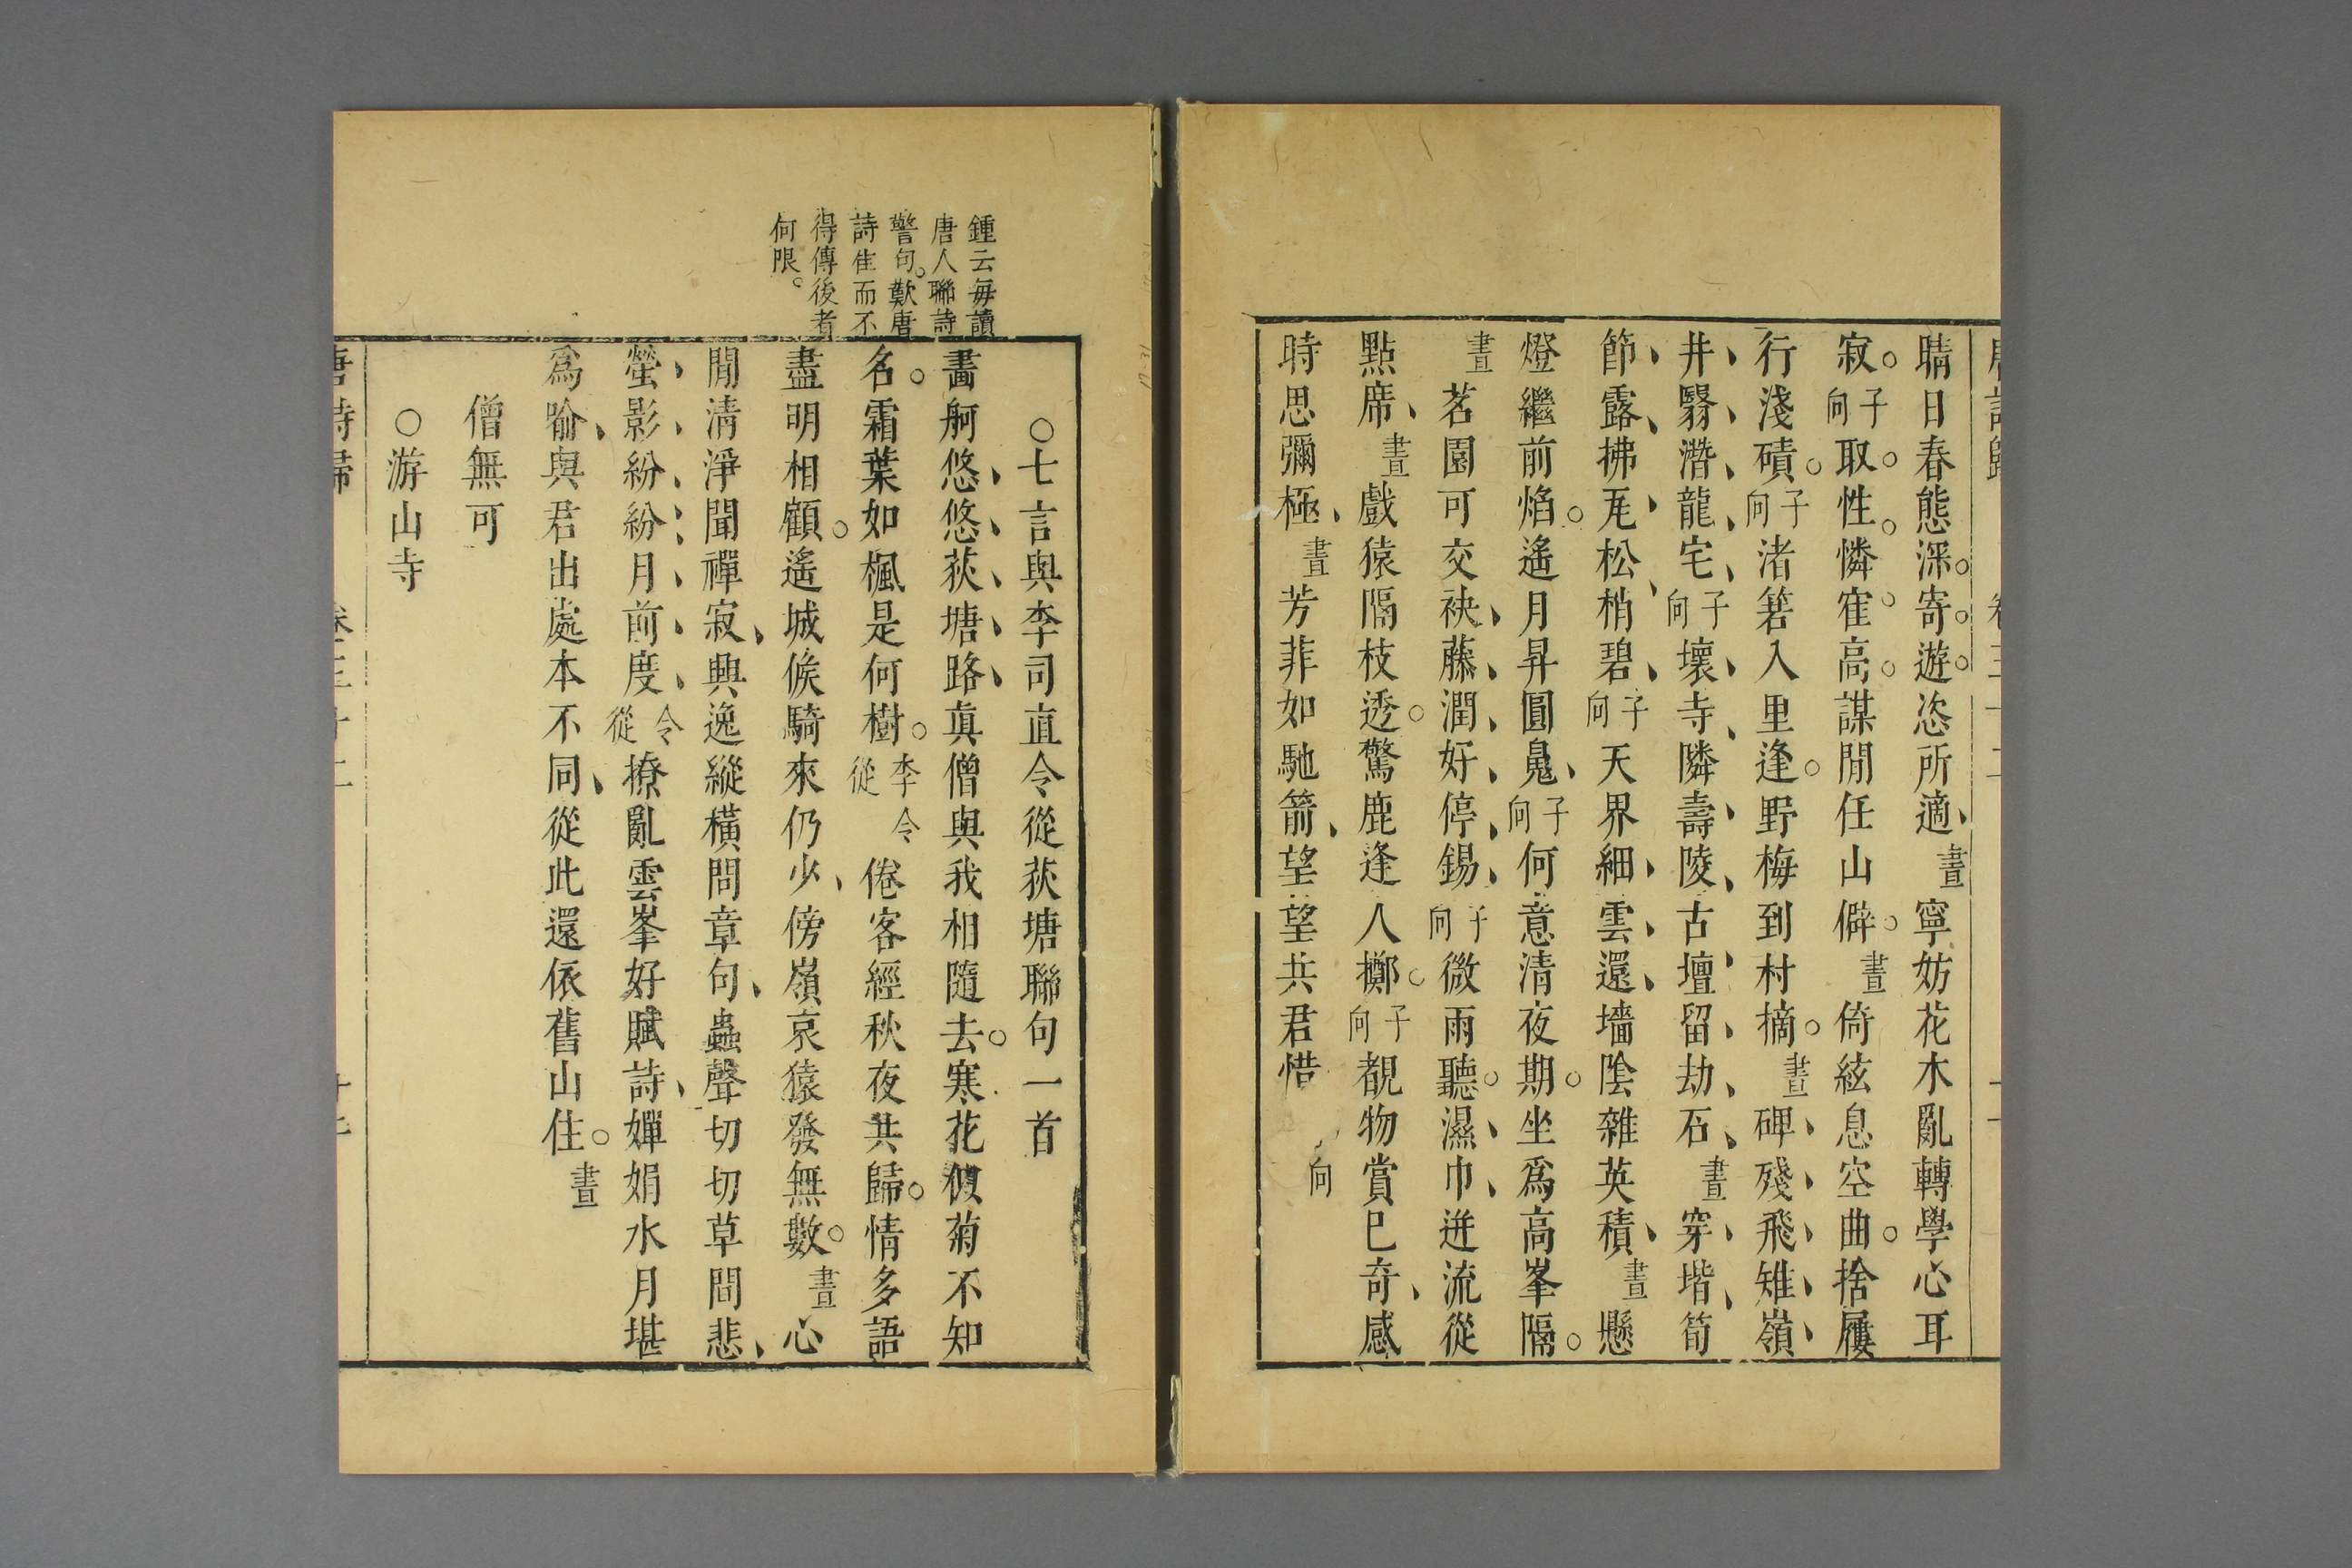 晴日春態深寄遊恣所適晝寧妨花木亂轉學心耳
寂子向取性憐隺高謀閒任山僻晝倚絃息空曲捨屨
行淺磧子向渚箬入里逢野梅到村摘晝碑殘飛雉嶺
井翳潛龍宅子向壞寺隣壽陵古壇留劫石晝穿堦筍
節露拂瓦松梢碧子向天界細雲還墻陰雜英積晝懸
燈繼前焰遙月昇圓鬼子向何意清夜期坐爲高峯隔
晝茗園可交袂藤澗好停錫子向微雨聽濕巾迸流從
點席晝戲猿隔枝透驚鹿逢人擲子向覩物賞已奇感
時思彌極晝芳菲如馳箭望望共君惜向
鍾云每讀
唐人聯詩
警句歎唐
詩佳而不
得傳後者
何限
○七言與李司直令從荻塘聯句一首
畫舸悠悠荻塘路真僧與我相隨去寒花似菊不知
名霜葉如楓是何樹李令從倦客經秋夜共歸情多語
盡明相顧遙城候騎來仍少傍嶺哀猿發無數晝心
閒清淨聞禪寂興逸縱橫問章句蟲聲切切草間悲
螢影紛紛月前度令從撩亂雲峯好賦詩嬋娟水月堪
爲喻與君出處本不同從此還依舊山住晝
僧無可
○游山寺